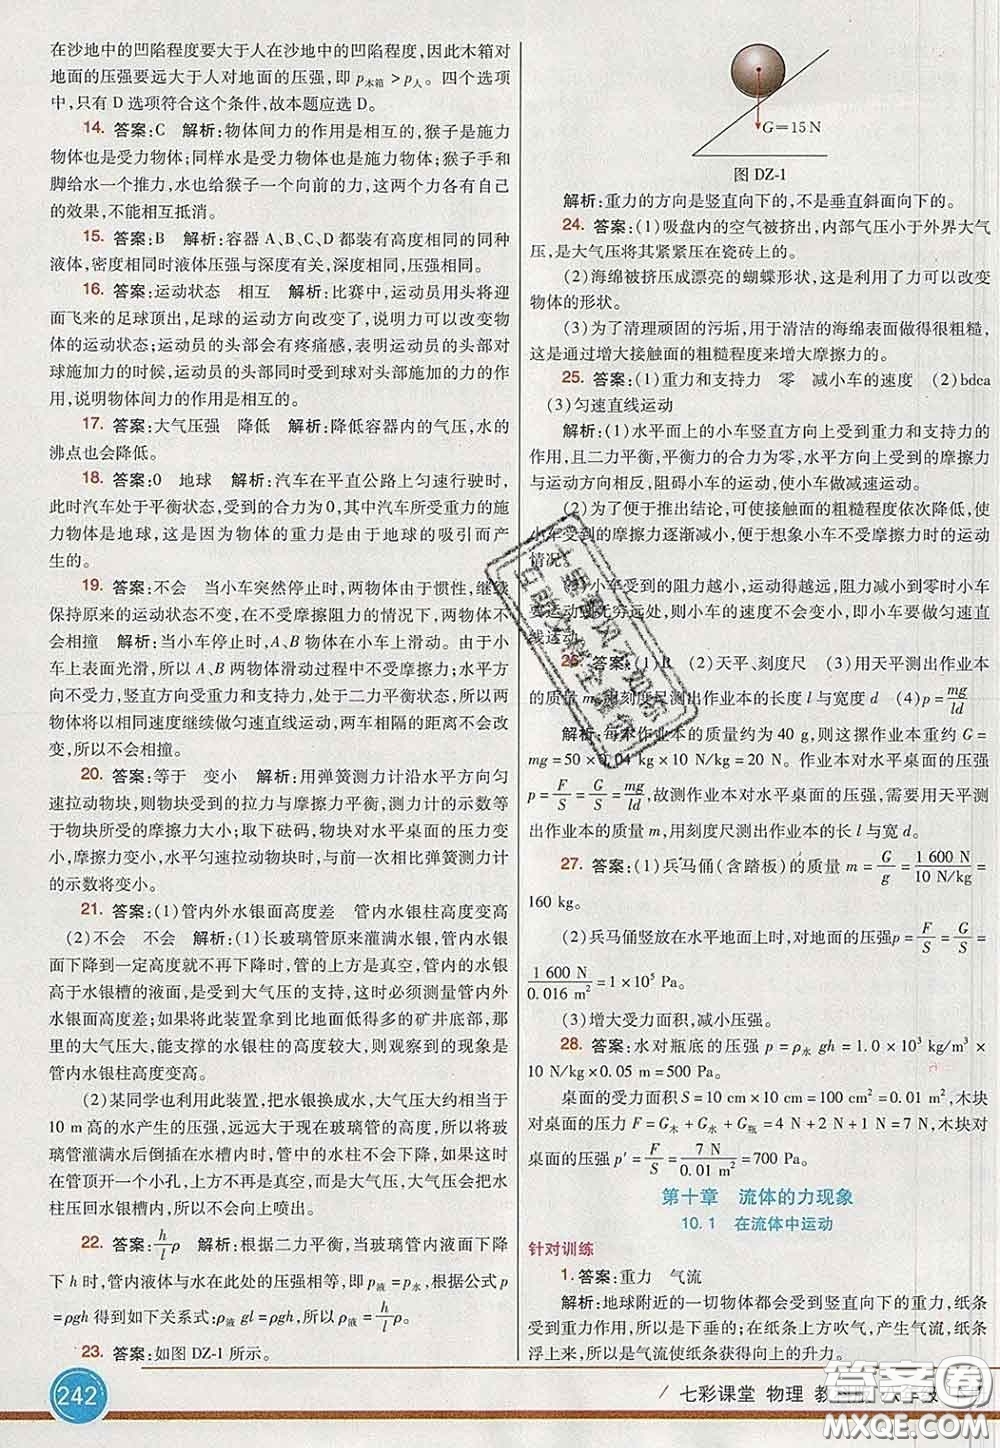 在沙地中的凹陷程度要大于人在沙地中的凹陷程度,因此木箱对
地面的压强要远大于人对地面的压强,即 p木箱 > p人。四个选项
中,只有 D 选项符合这个条件,故本题应选 D。
14. 答案:C 解析:物体间力的作用是相互的,猴子是施力
物体也是受力物体;同样水是受力物体也是施力物体;猴子手和
脚给水一个推力,水也给猴子一个向前的力,这两个力各有自己
的效果,不能相互抵消。
15. 答案:B 解析:容器 A、B、C、D 都装有高度相同的同种
液体,密度相同时液体压强与深度有关,深度相同,压强相同。
16. 答案:运动状态 相互 解析:比赛中,运动员用头将迎
面飞来的足球顶出,足球的运动方向改变了,说明力可以改变物
体的运动状态;运动员的头部会有疼痛感,表明运动员的头部对
球施加力的时候,运动员的头部同时受到球对头部施加的力的作
用,说明物体间力的作用是相互的。
17. 答案:大气压强 降低 解析:降低容器内的气压,水的
沸点也会降低。
18. 答案:0 地球 解析:汽车在平直公路上匀速行驶时,
此时汽车处于平衡状态,受到的合力为0,其中汽车所受重力的施
力物体是地球,这是因为物体的重力是由于地球的吸引而产
生的。
19. 答案:不会 当小车突然停止时,两物体由于惯性,继续
保持原来的运动状态不变,在不受摩擦阻力的情况下,两物体不
会相撞 解析:当小车停止时,A、B 物体在小车上滑动。由于小
车上表面光滑,所以 A、B 两物体滑动过程中不受摩擦力;水平方
向不受力,竖直方向受重力和支持力,处于二力平衡状态,所以两
物体将以相同的速度继续做匀速直线运动,两车相隔的距离不会改
变,所以不会相撞。
20. 答案:等于 变小 解析:用弹簧测力计沿水平方向匀
速拉动物块,则物块受到的拉力与摩擦力平衡,测力计的示数等
于物块所受的摩擦力大小;取下砝码,物块对水平桌面的压力变
小,摩擦力变小,水平匀速拉动物块时,与前一次相比弹簧测力计
的示数将变小。
21. 答案:(1)管内外水银面高度差 管内水银柱高度变高
(2)不会 不会 解析:(1)长玻璃管原来灌满水银,管内水银
面下降到一定高度时不再下降,管的上方是真空,管内的水银
高于水银槽的液面,是受到大气压的支持,这时必须测量管内外
水银面高度差;如果将此装置拿到比地面低得多的矿井底部,那
里的大气压大,能支撑的水银柱的高度较大,则观察到的现象是
管内水银柱高度变高。
(2)某同学也利用此装置,把水银换成水,大气压大约相当于
10 m高的水产生的压强,远远大于玻璃管的高度,所以将此玻璃
管灌满水后竖直插入水槽内时,管中的水柱不会下降,如果这时
在管顶开一个小孔,上方不再是真空,而是大气压,大气压会把水
压回水银槽内,所以不会向上喷出。
22. 答案:h/l ρ 解析:根据二力平衡,当玻璃管内液面下降
下 h 时,管内液体与水在此处的压强相等,即 p液 = p水,根据公式 p
= ρgh 得出如下关系式:ρ液 gl = ρgh,所以 ρ液 = h/l ρ。
23. 答案:如图 DZ-1 所示。
G=15 N
图 DZ-1
解析:重力的方向是竖直向下的,不是垂直斜面向下的。
24. 答案:(1)吸盘内的空气被挤出,内部气压小于外界大气
压,是大气压将其紧紧压在瓷砖上的。
(2)海绵被挤压成漂亮的蝴蝶形状,这是利用了力可以改变
物体的形状。
(3)为了清理顽固的污垢,用于清洁的海绵表面做得很粗糙,
这是通过增大接触面的粗糙程度来增大摩擦力的。
25. 答案:(1)重力和支持力 零 减小车的速度 (2)bdca
(3)匀速直线运动
解析:(1)水平面上的小车竖直方向上受到重力和支持力的
作用,且二力平衡,平衡力的合力为零,水平方向上受到的摩擦力
与运动方向相反,阻碍小车的运动,使小车做减速运动。
(2)为了便于推出结论,可使接触面的粗糙程度依次降低,使
小车受到的摩擦力逐渐减小,便于想象小车不受摩擦力时的运动
情况。
小车受到的阻力越小,运动得越远,阻力减小到零时小车
要运动到无穷远处,则小车的速度不会变小,即小车要做匀速直
线运动。
26. 答案:(1)B (2)天平、刻度尺 (3)用天平测出作业本
的质量 m,用刻度尺测出作业本的长度 l 与宽度 d (4)p=mg/ld
解析:每本作业本的质量约为 40 g,则这摞作业本重约 G =
mg = 50 × 0.04 kg × 10 N/kg = 20 N。作业本对水平桌面的压强
p = F/S = G/S = mg/ld,故测作业本对水平桌面的压强,需要用天平测
出作业本的质量 m,用刻度尺测出作业本的长 l 与宽 d。
27. 答案:(1)兵马俑(含踏板)的质量 m = G/g = 1 600 N/10 N/kg =
160 kg。
(2)兵马俑竖放在水平地面上时,对地面的压强p = F/S = G/S =
1 600 N/0.016 m² = 1 × 10⁵ Pa。
(3)增大受力面积,减小压强。
28. 答案:水对瓶底的压强 p = ρ水 gh = 1.0 × 10³ kg/m³ ×
10 N/kg × 0.05 m = 500 Pa。
桌面的受力面积 S = 10 cm × 10 cm = 100 cm² = 0.01 m²,木块
对桌面的压力 F = G木 + G水 + G瓶 = 4 N + 2 N + 1 N = 7 N,木块对
对桌面的压强 p′ = F/S = 7 N/0.01 m² = 700 Pa。
第十章 流体的力现象
10.1 在流体中运动
针对训练
1. 答案:重力 气流
解析:地球附近的一切物体都会受到竖直向下的重力,纸条
受重力作用,所以是下垂的;在纸条上方吹气,产生气流,纸条
浮上来,所以是气流使纸条获得向上的升力。
242
七彩课堂 物理 教科版 八年级 下册
答案圈
MXQE.COM